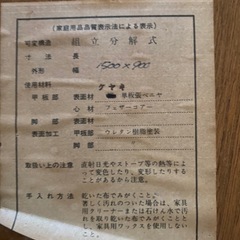 (家庭用品品質表示法による表示)
可変構造 組立分解式
寸法 長
外形 幅 1500×900
使用材料 ケヤキ
甲板部 表面材 単板張ベニヤ
心材 フェザーコアー
脚部 表面材
表面加工 甲板部 ウレタン樹脂塗装
脚部 〃
取扱い上の注意 直射日光やストーブ等の熱等によって変色したり、変形したりすることがあるから注意。
手入れ方法 乾いた布でみがくこと。
著しく汚れのついた場合は、家具用クリーナーまたは石けん水で汚れを取り乾いた布でみがくこと、家具用ワックスを使用しないこと。